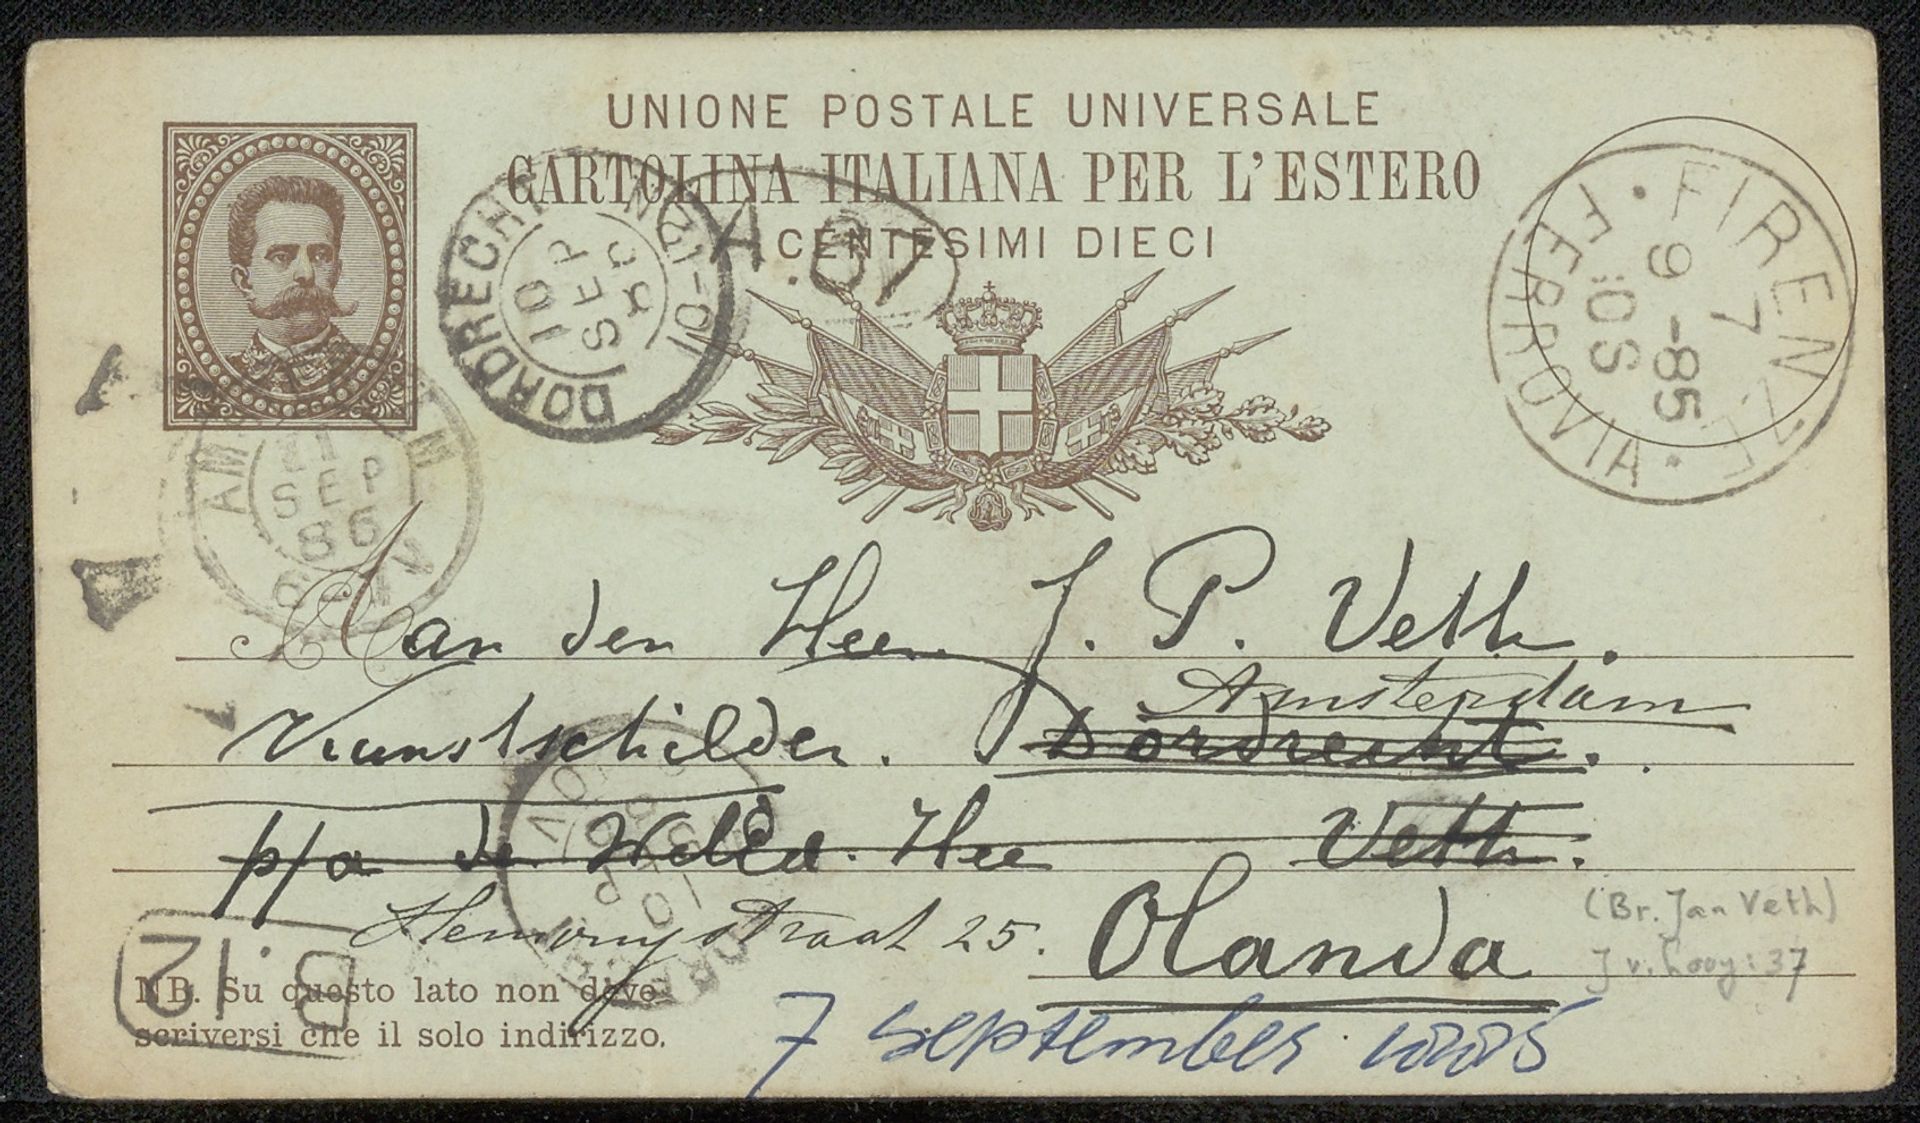 UNIONE POSTALE UNIVERSALE
CARTOLINA ITALIANA PER L'ESTERO
CENTESIMI DIECI
FIRENZE
7
9 -85
10S
FERROVIA
DORDRECHT
10 SEP
AMSTERDAM
11
SEP
Aan den Heer J. P. Veth.
Amsterdam
Kunstschilder. Dordrecht.
p/a de Heer Veth.
Hemonystraat 25.
Olanda
(Br. Jan Veth)
J v. Looy: 37
B.12
NB. Su questo lato non deve
scriversi che il solo indirizzo.
7 september 1885